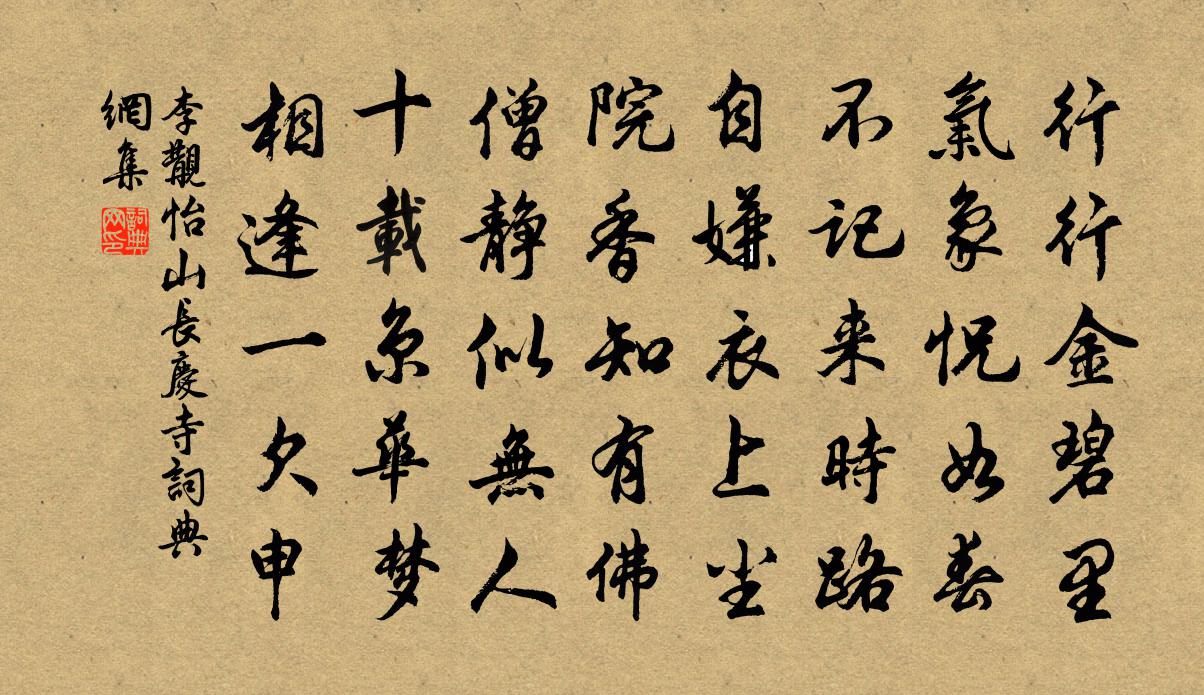 行行金碧里
氣象怳如春
不记来時路
自嫌衣上尘
院香知有佛
僧静似無人
十載京華梦
相逢一欠申
李觀怡山長慶寺詞典
網集
詞典
网印